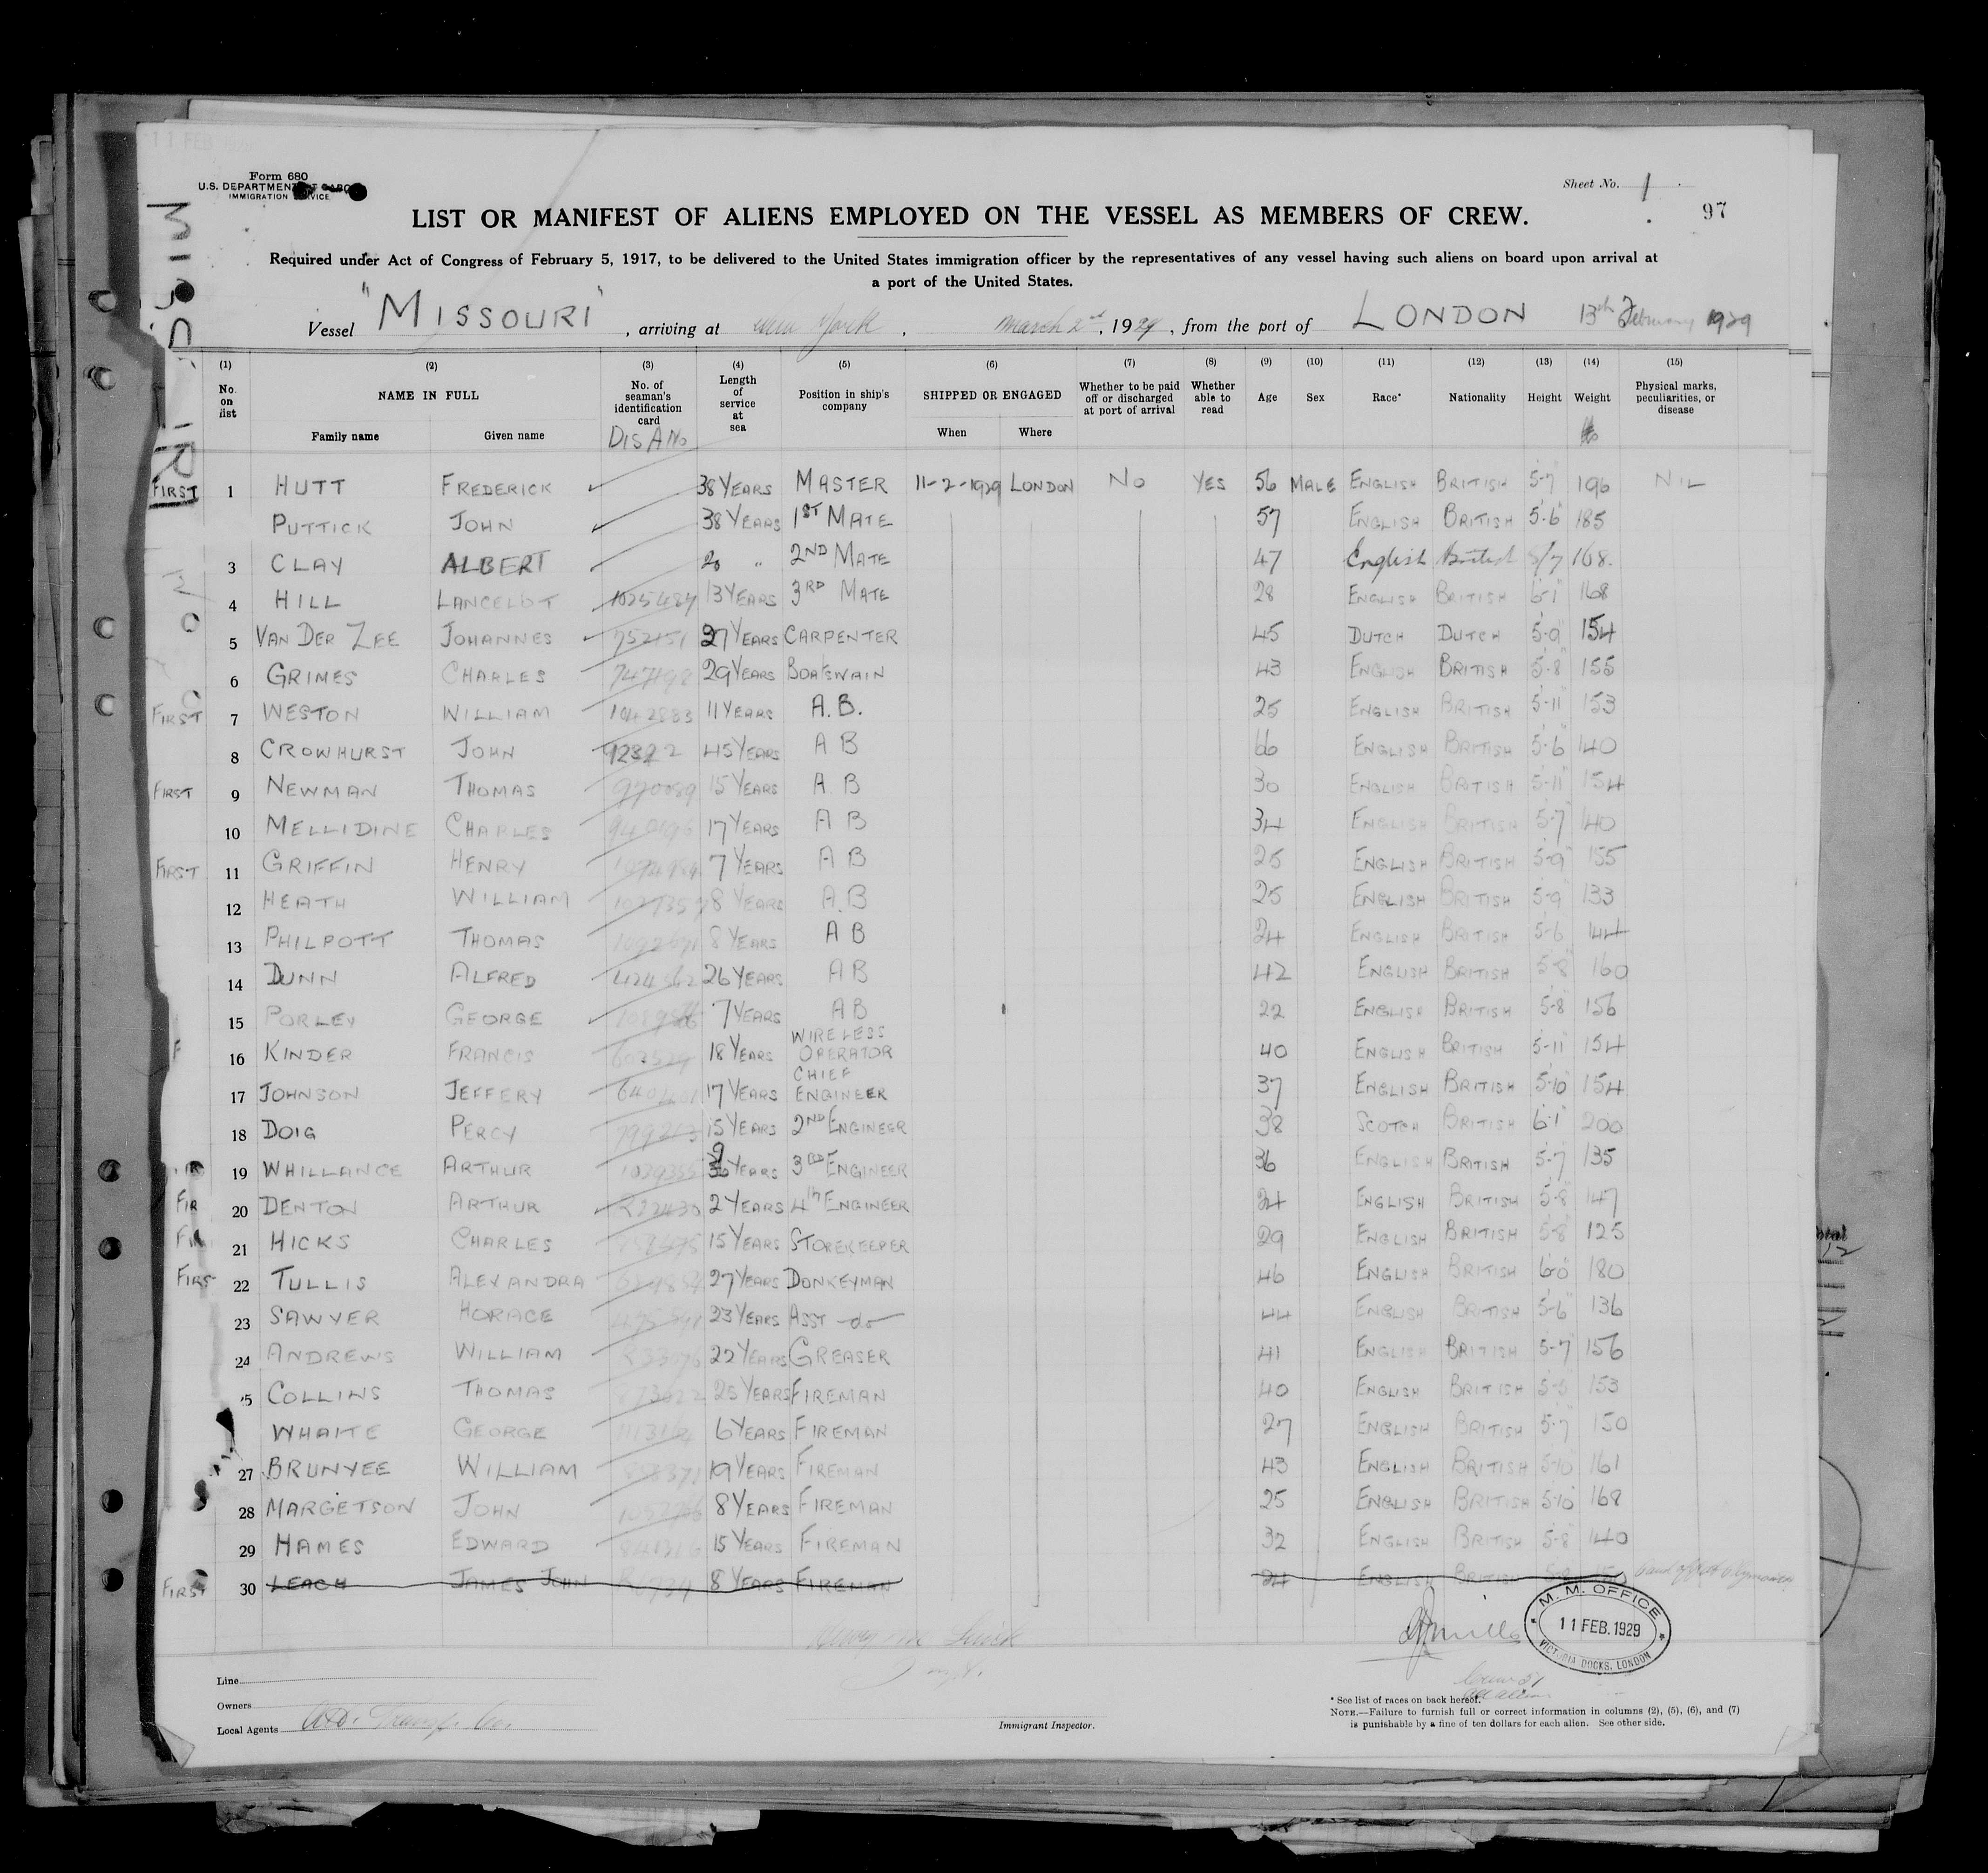 Form 680
U.S. DEPARTMENT
IMMIGRATION SERVICE
Sheet No. 1
97
LIST OR MANIFEST OF ALIENS EMPLOYED ON THE VESSEL AS MEMBERS OF CREW.
Required under Act of Congress of February 5, 1917, to be delivered to the United States immigration officer by the representatives of any vessel having such aliens on board upon arrival at
a port of the United States.
Vessel "MISSOURI", arriving at New York, March 2nd, 1929, from the port of LONDON 13th February 1929
(1) (2) (3) (4) (5) (6) (7) (8) (9) (10) (11) (12) (13) (14) (15)
No. on list NAME IN FULL Family name Given name No. of seaman's identification card DIS A No Length of service at sea Position in ship's company SHIPPED OR ENGAGED When Where Whether to be paid off or discharged at port of arrival Whether able to read Age Sex Race* Nationality Height Weight Physical marks, peculiarities, or disease
FIRST 1 HUTT FREDERICK 38 YEARS MASTER 11-2-1929 LONDON NO YES 56 MALE ENGLISH BRITISH 5-7 196 NIL
PUTTICK JOHN 38 YEARS 1ST MATE 57 ENGLISH BRITISH 5-6 185
3 CLAY ALBERT 20 " 2ND MATE 47 English British 5/7 168.
4 HILL LANCELOT 1025487 13 YEARS 3RD MATE 28 ENGLISH BRITISH 6-1 168
5 VAN DER ZEE JOHANNES 752151 27 YEARS CARPENTER 45 DUTCH DUTCH 5-9 154
6 GRIMES CHARLES 747198 29 YEARS BOATSWAIN 43 ENGLISH BRITISH 5-8 155
FIRST 7 WESTON WILLIAM 1042883 11 YEARS A.B. 25 ENGLISH BRITISH 5-11 153
8 CROWHURST JOHN 45 YEARS A B 66 ENGLISH BRITISH 5-6 140
FIRST 9 NEWMAN THOMAS 970089 15 YEARS A B 30 ENGLISH BRITISH 5-11 154
10 MELLIDINE CHARLES 17 YEARS A B 34 ENGLISH BRITISH 5-7 140
FIRST 11 GRIFFIN HENRY 7 YEARS A B 25 ENGLISH BRITISH 5-9 155
12 HEATH WILLIAM 8 YEARS A.B 25 ENGLISH BRITISH 5-9 133
13 PHILPOTT THOMAS 8 YEARS A B 24 ENGLISH BRITISH 5-6 144
14 DUNN ALFRED 424562 26 YEARS A B 42 ENGLISH BRITISH 5-8 160
15 PORLEY GEORGE 7 YEARS A B 22 ENGLISH BRITISH 5-8 156
F 16 KINDER FRANCIS 18 YEARS WIRELESS OPERATOR 40 ENGLISH BRITISH 5-11 154
17 JOHNSON JEFFERY 17 YEARS CHIEF ENGINEER 37 ENGLISH BRITISH 5-10 154
18 DOIG PERCY 15 YEARS 2ND ENGINEER 38 SCOTCH BRITISH 6-1 200
19 WHILLANCE ARTHUR 1039355 9 YEARS 3RD ENGINEER 36 ENGLISH BRITISH 5-7 135
FIR 20 DENTON ARTHUR 2 YEARS 4th ENGINEER 24 ENGLISH BRITISH 5-8 147
FIR 21 HICKS CHARLES 15 YEARS STOREKEEPER 29 ENGLISH BRITISH 5-8 125
FIRS 22 TULLIS ALEXANDRA 27 YEARS DONKEYMAN 46 ENGLISH BRITISH 6-0 180
23 SAWYER HORACE 23 YEARS ASST do 44 ENGLISH BRITISH 5-6 136
24 ANDREWS WILLIAM 22 YEARS GREASER 41 ENGLISH BRITISH 5-7 156
5 COLLINS THOMAS 25 YEARS FIREMAN 40 ENGLISH BRITISH 153
WHAITE GEORGE 6 YEARS FIREMAN 27 ENGLISH BRITISH 5-7 150
27 BRUNYEE WILLIAM 19 YEARS FIREMAN 43 ENGLISH BRITISH 5-10 161
28 MARGETSON JOHN 8 YEARS FIREMAN 25 ENGLISH BRITISH 5-10 168
29 HAMES EDWARD 15 YEARS FIREMAN 32 ENGLISH BRITISH 5-8 140
FIRST 30 LEACH JAMES JOHN 8 YEARS FIREMAN 24 ENGLISH BRITISH
M. M. OFFICE
11 FEB. 1929
VICTORIA DOCKS, LONDON
Line
Owners
Local Agents
Immigrant Inspector.
* See list of races on back hereof.
NOTE.—Failure to furnish full or correct information in columns (2), (5), (6), and (7)
is punishable by a fine of ten dollars for each alien. See other side.